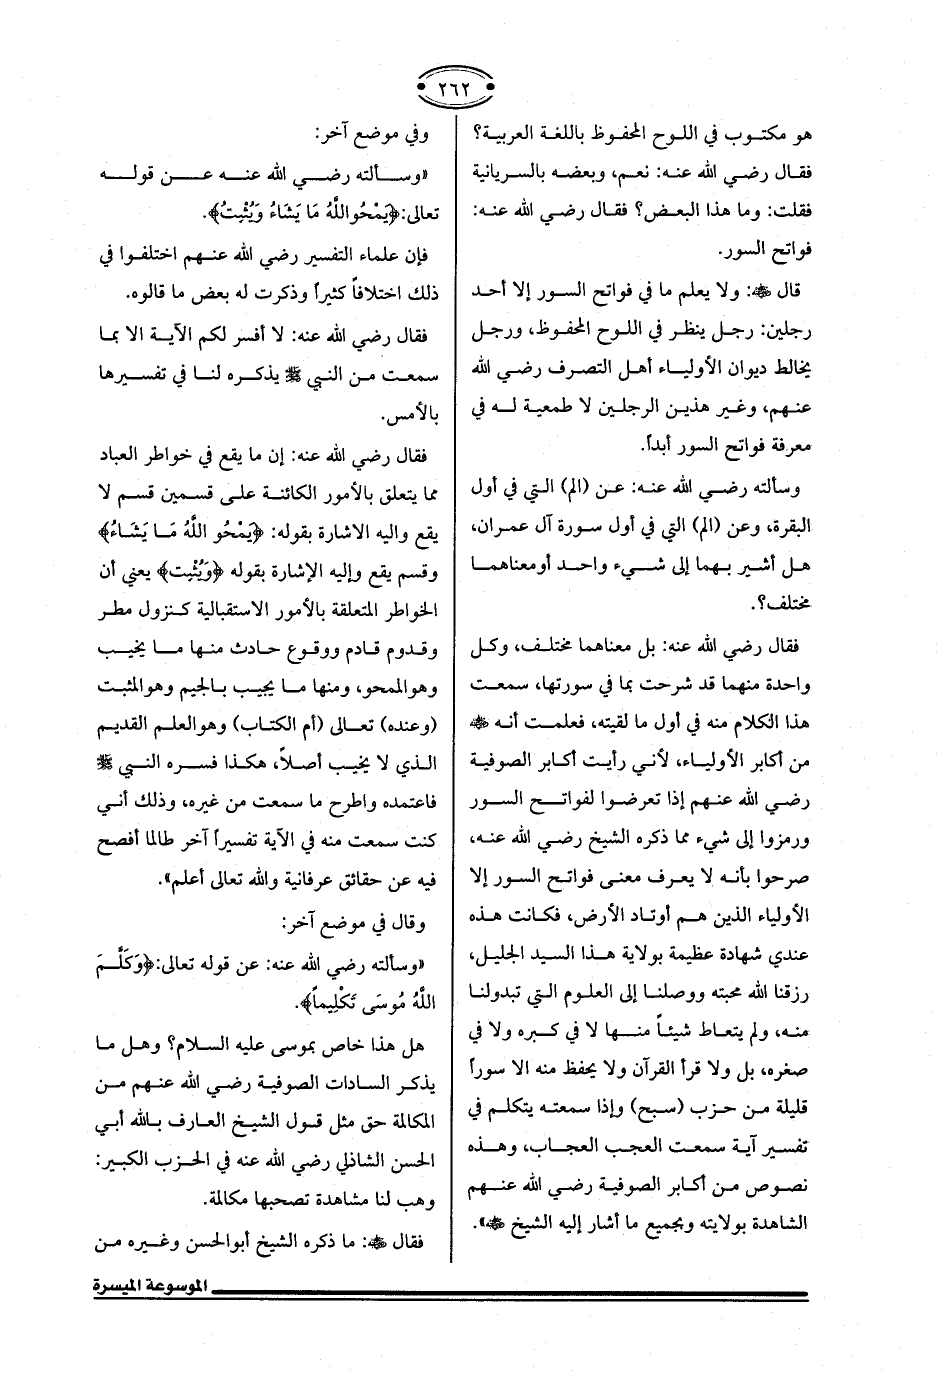 ٢٦٢
هو مكتوب في اللوح المحفوظ باللغة العربية؟
فقال رضي الله عنه: نعم، وبعضه بالسريانية
فقلت: وما هذا البعض؟ فقال رضي الله عنه:
فواتح السور.
قال ﷺ: ولا يعلم ما في فواتح السور إلا أحد
رجلين: رجل ينظر في اللوح المحفوظ، ورجل
يخالط ديوان الأولياء أهل التصرف رضي الله
عنهم، وغير هذين الرجلين لا طمعية له في
معرفة فواتح السور أبداً.
وسألته رضي الله عنه: عن (الم) التي في أول
البقرة، وعن (الم) التي في أول سورة آل عمران،
هل أشير بهما إلى شيء واحد أومعناهما
مختلف؟.
فقال رضي الله عنه: بل معناهما مختلف، وكل
واحدة منهما قد شرحت بما في سورتها، سمعت
هذا الكلام منه في أول ما لقيته، فعلمت أنه
من أكابر الأولياء، لأني رأيت أكابر الصوفية
رضي الله عنهم إذا تعرضوا لفواتح السور
ورمزوا إلى شيء مما ذكره الشيخ رضي الله عنه،
صرحوا بأنه لا يعرف معنى فواتح السور إلا
الأولياء الذين هم أوتاد الأرض، فكانت هذه
عندي شهادة عظيمة بولاية هذا السيد الجليل،
رزقنا الله محبته ووصلنا إلى العلوم التي تبدولنا
منه، ولم يتعاط شيئاً منها لا في كبره ولا في
صغره، بل ولا قرأ القرآن ولا يحفظ منه الا سوراً
قليلة من حزب (سبح) وإذا سمعته يتكلم في
تفسير آية سمعت العجب العجاب، وهذه
نصوص من أكابر الصوفية رضي الله عنهم
الشاهدة بولايته وبجميع ما أشار إليه الشيخ».
وفي موضع آخر:
«وسألته رضي الله عنه عن قوله
تعالى:﴿يَمْحُواللَّهُ مَا يَشَاءُ وَيُثْبِتُ﴾.
فإن علماء التفسير رضي الله عنهم اختلفوا في
ذلك اختلافاً كثيراً وذكرت له بعض ما قالوه.
فقال رضي الله عنه: لا أفسر لكم الآية الا بما
سمعت من النبي ﷺ يذكره لنا في تفسيرها
بالأمس.
فقال رضي الله عنه: إن ما يقع في خواطر العباد
مما يتعلق بالأمور الكائنة على قسمين قسم لا
يقع واليه الاشارة بقوله: ﴿يَمْحُو اللَّهُ مَا يَشَاءُ﴾
وقسم يقع وإليه الإشارة بقوله ﴿وَيُثْبِت﴾ يعني أن
الخواطر المتعلقة بالأمور الاستقبالية كنزول مطر
وقدوم قادم ووقوع حادث منها ما يخيب
وهوالممحو، ومنها ما يجيب بالجيم وهوالمثبت
(وعنده) تعالى (أم الكتاب) وهوالعلم القديم
الذي لا يخيب أصلاً، هكذا فسره النبي ﷺ
فاعتمده واطرح ما سمعت من غيره، وذلك أني
كنت سمعت منه في الآية تفسيراً آخر طالما أفصح
فيه عن حقائق عرفانية والله تعالى أعلم».
وقال في موضع آخر:
«وسألته رضي الله عنه: عن قوله تعالى:﴿وَكَلَّمَ
اللَّهُ مُوسَى تَكْلِيماً﴾.
هل هذا خاص بموسى عليه السلام؟ وهل ما
يذكر السادات الصوفية رضي الله عنهم من
المكالمة حق مثل قول الشيخ العارف بالله أبي
الحسن الشاذلي رضي الله عنه في الحزب الكبير:
وهب لنا مشاهدة تصحبها مكالمة.
فقال: ما ذكره الشيخ أبوالحسن وغيره من
الموسوعة الميسرة